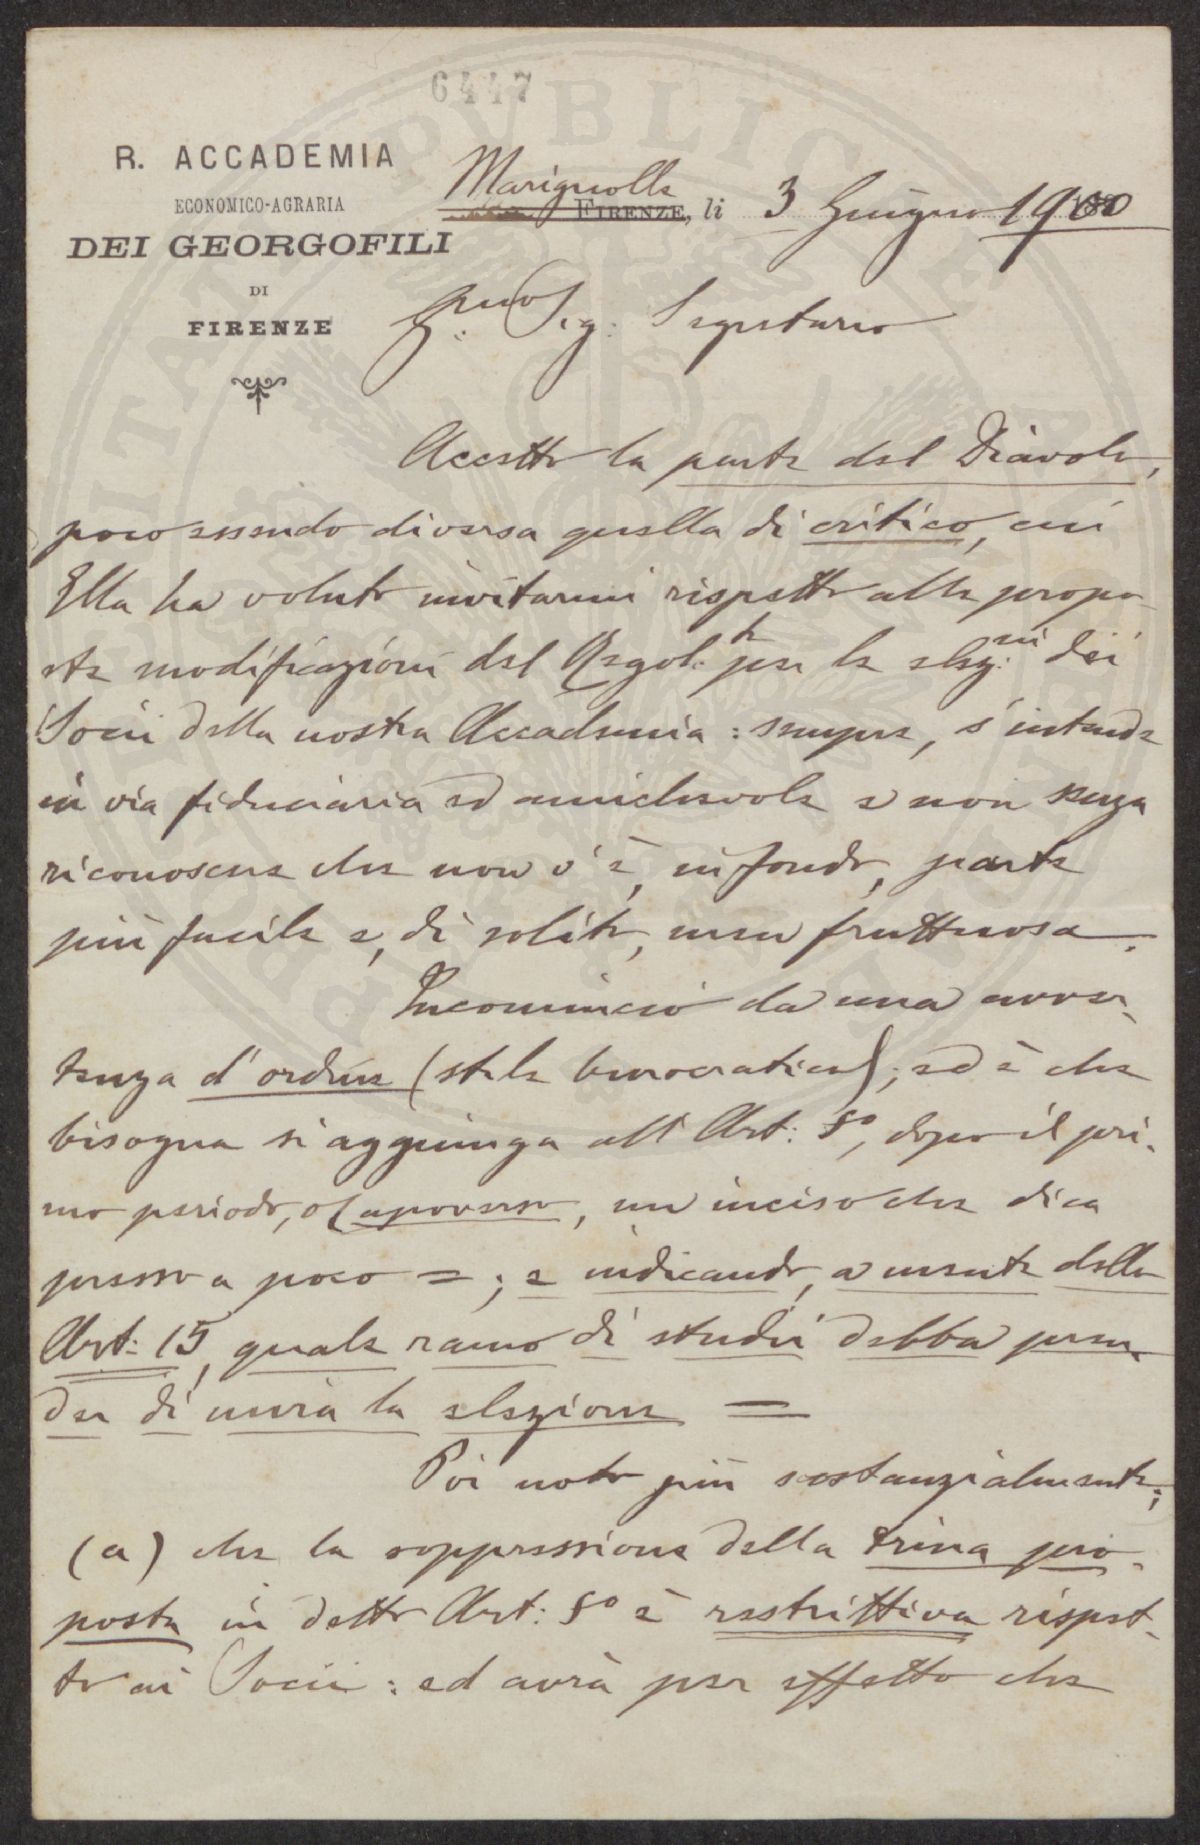 6447
R. ACCADEMIA
ECONOMICO-AGRARIA
DEI GEORGOFILI
DI
FIRENZE
Marignolle
FIRENZE, li 3 Giugno 1900
Sig: Segretario
Accetto la parte del Diavolo,
poco essendo diversa quella di critico, cui
Ella ha voluto invitarmi rispetto alle propo-
ste modificazioni del Regol:to per le elez:ni dei
Socii della nostra Accademia: sempre, s'intende
in via fiduciaria ed amichevole e non senza
riconoscere che non v'è, in fondo, parte
più facile e, di solito, men fruttuosa.
Incomincio da una avver-
tenza d'ordine (stile burocratico); ed è che
bisogna si aggiunga all'Art: 8º, dopo il pri-
mo periodo, o capoverso, un inciso che dica
presso a poco =; e indicando, a mente dello
Art: 15, quale ramo di studii debba pren-
der di mira la elezione =
Poi noto più sostanzialmente;
(a) che la soppressione della trina pro-
posta in detto Art: 8º è restrittiva rispet-
to ai Socii: ed avrà per effetto che